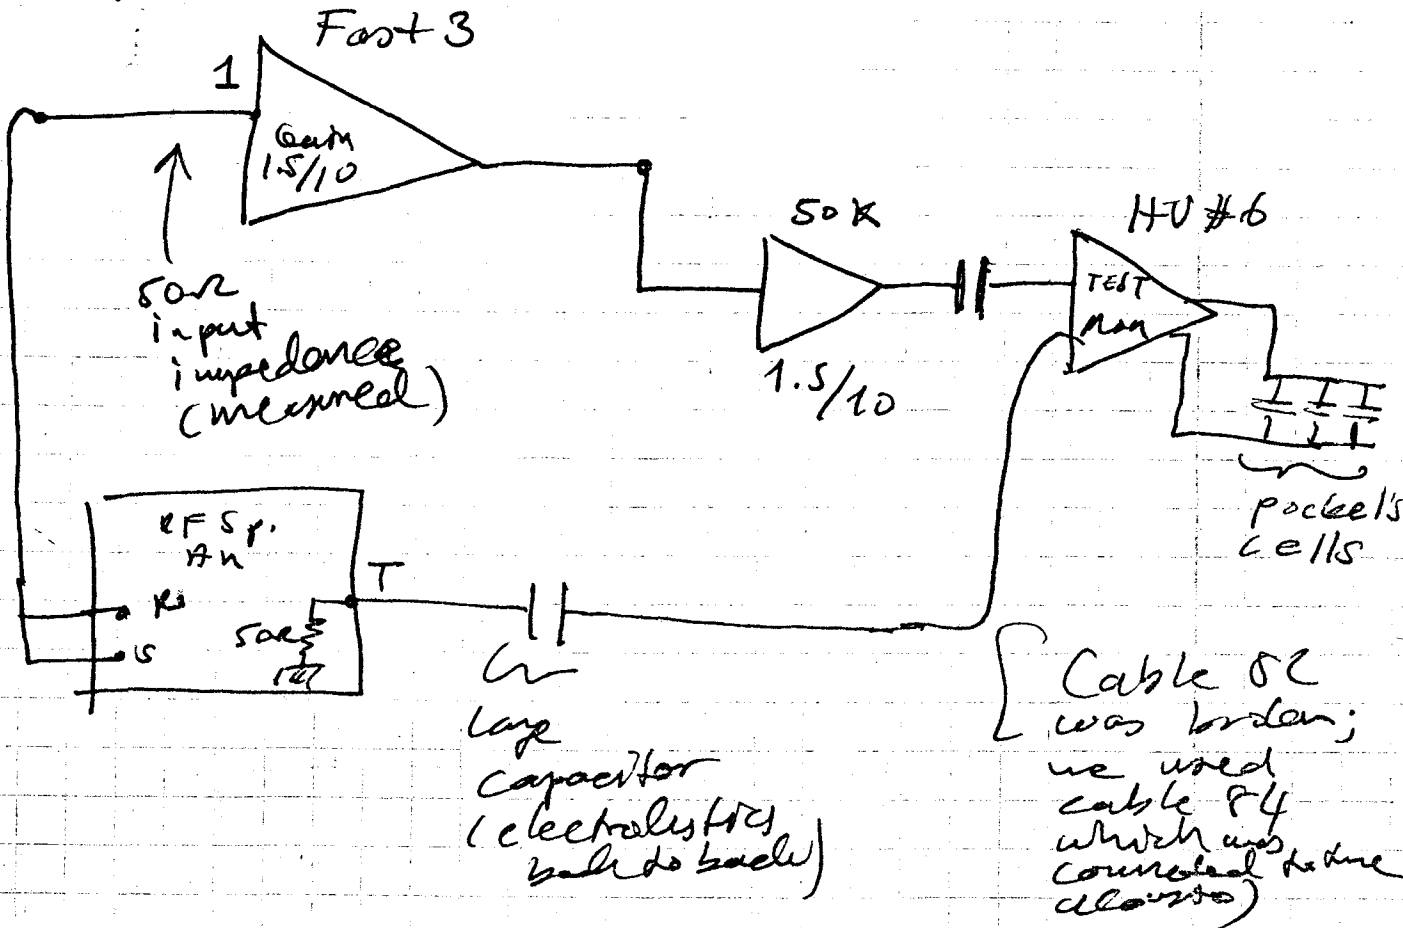 Fast 3
1
Gain
1.5/10
50Ω
input
impedance
(measured)
50K
1.5/10
HV #6
TEST
Mon
Pockel's
cells
RF Sp.
An
T
50Ω
Large
capacitor
(electrolistics
back to back)
Cable 82
was broken;
we used
cable 84
which was
connected to the